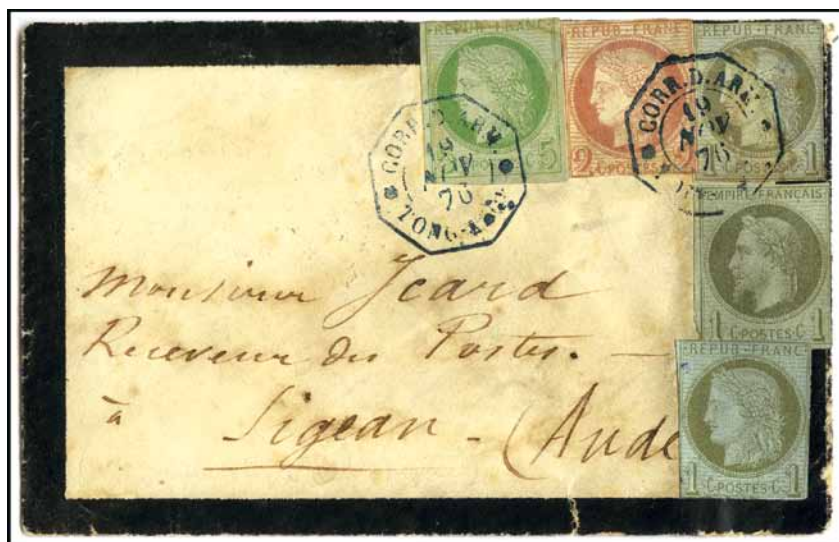 REPUB·FRANC
C·POSTES·C 5
REPUB·FRANC
2 C·POSTES·C 2
REPUB·FRANC
1 C·POSTES·C 1
CORR.D.ARM.
19
NOV
76
TONG-KIN
CORR.D.ARM.
19
NOV
76
EMPIRE FRANÇAIS
1 C·POSTES·C 1
REPUB·FRANC
1 C·POSTES·C 1
Monsieur Icard
Receveur des Postes. —
à Sigean - (Aude